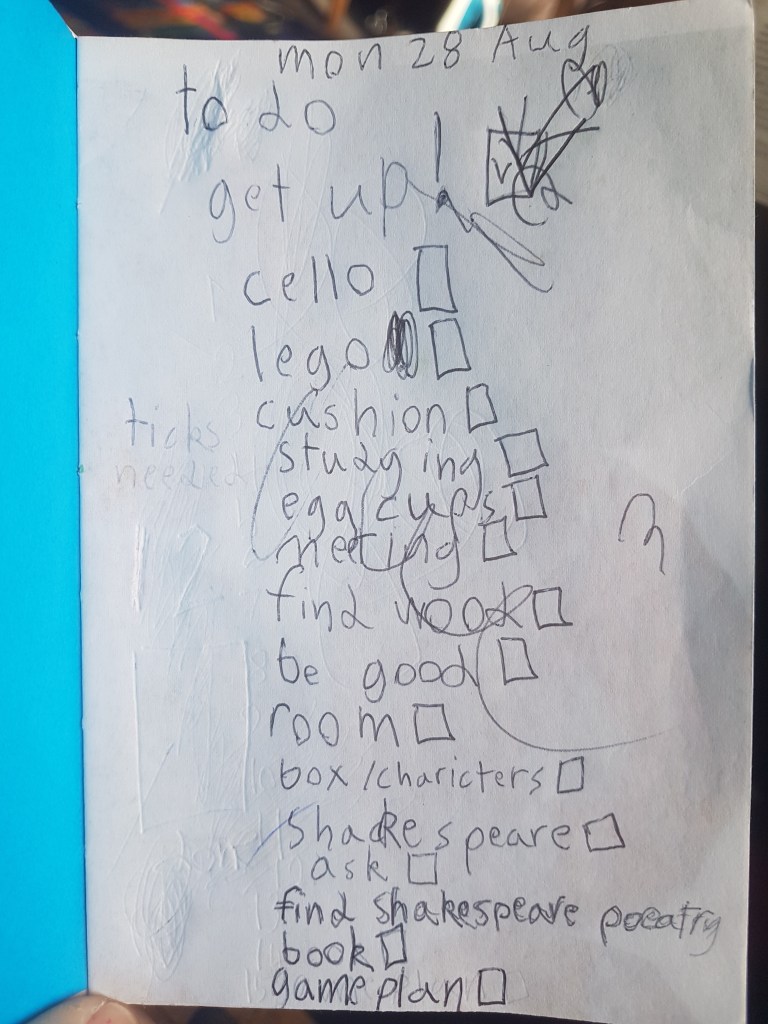 mon 28 Aug
to do
get up!
cello
lego
cushion
studying
egg cups
meeting
find wook
be good
room
box/charicters
Shakespeare
ask
find shakespeare poeatry
book
game plan
ticks
needed
12